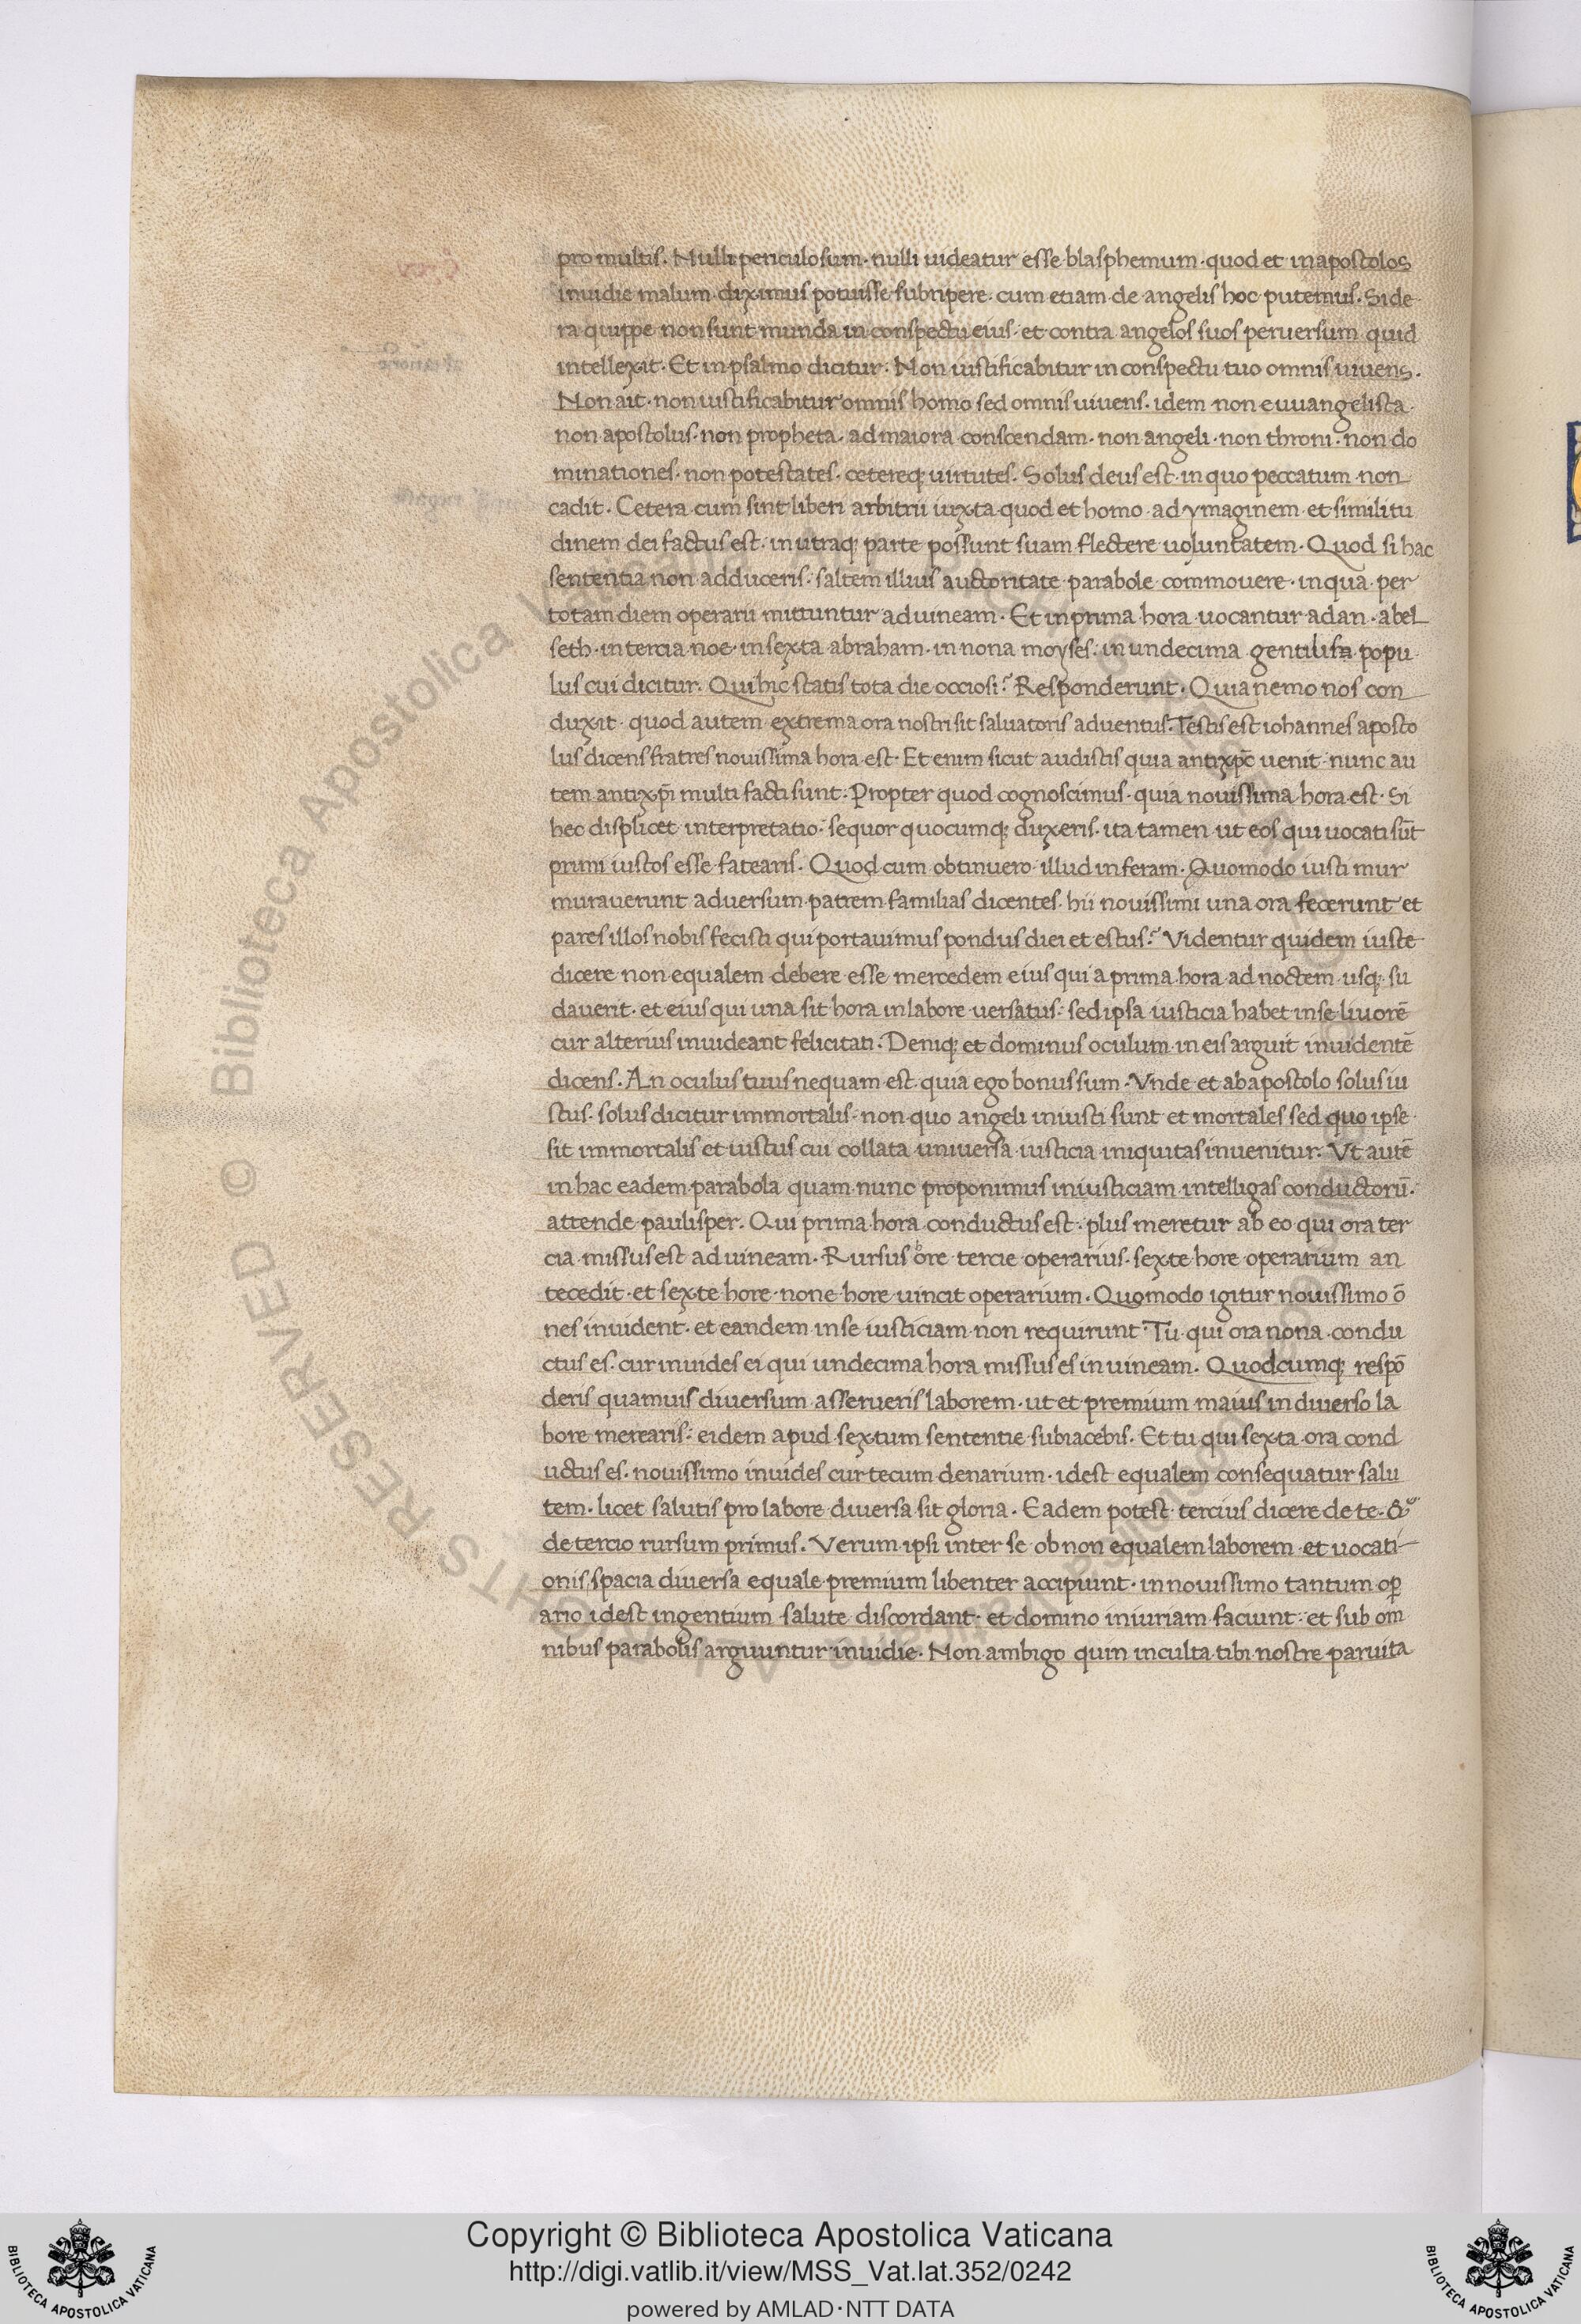 pro multis. Nulli periculosum. nulli uideatur esse blasphemum. quod et in apostolos
inuidie malum diximus potuisse subripere. cum etiam de angelis hoc putemus. Side
ra quippe non sunt munda in conspectu eius. et contra angelos suos peruersum quid
intellexit. Et in psalmo dicitur. Non iustificabitur in conspectu tuo omnis uiuens.
Non ait. non iustificabitur omnis homo sed omnis uiuens. idem non euuangelista.
non apostolus. non propheta. ad maiora conscendam. non angeli. non throni. non do
minationes. non potestates. cetereq; uirtutes. Solus deus est. in quo peccatum non
cadit. Cetera cum sint liberi arbitrii iuxta quod et homo ad ymaginem et similitu
dinem dei factus est. in utraq; parte possunt suam flectere uoluntatem. Quod si hac
sententia non adduceris. saltem illius auctoritate parabole commouere. in qua per
totam diem operarii mittuntur ad uineam. Et in prima hora uocantur adan. abel
seth. in tercia noe. in sexta abraham. in nona moyses. in undecima gentilium popu
lus cui dicitur. Qui hic statis tota die occiosi? Responderunt. Quia nemo nos con
duxit. quod autem extrema ora nostri sit saluatoris aduentus. Testis est iohannes aposto
lus dicens fratres nouissima hora est. Et enim sicut audistis quia antixp̄c uenit. nunc au
tem antixp̄i multi facti sunt. Propter quod cognoscimus. quia nouissima hora est. Si
hec displicet interpretatio. sequor quocumq; duxeris. ita tamen ut eos qui uocati sūt
primi iustos esse fatearis. Quod cum obtinuero illud inferam. Quomodo iusti mur
murauerunt aduersum patrem familias dicentes. hii nouissimi una ora fecerunt et
pares illos nobis fecisti qui portauimus pondus diei et estus? Videntur quidem iuste
dicere non equalem debere esse mercedem eius qui a prima hora ad noctem usq; su
dauerit. et eius qui una sit hora in labore uersatus. sed ipsa iusticia habet in se liuorē
cur alterius inuideant felicitati. Deniq; et dominus oculum in eis arguit inuidentē
dicens. An oculus tuus nequam est quia ego bonus sum. Vnde et ab apostolo solus iu
stus. solus dicitur immortalis. non quo angeli iniusti sunt et mortales sed quo ipse
sit immortalis et iustus cui collata uniuersa iusticia iniquitas inuenitur. Vt autē
in hac eadem parabola quam nunc proponimus iniusticiam intelligas conductorū.
attende paulisper. Qui prima hora conductus est. plus meretur ab eo qui ora ter
cia missus est ad uineam. Rursus hore tercie operarius. sexte hore operarium an
tecedit. et sexte hore. none hore uincit operarium. Quomodo igitur nouissimo ō
nes inuident. et eandem in se iusticiam non requirunt. Tu qui ora nona condu
ctus es. cur inuides ei qui undecima hora missus es in uineam. Quodcumq; respō
deris quamuis diuersum asserueris laborem. ut et premium maius in diuerso la
bore merearis. eidem apud sextum sententie subiacebis. Et tu qui sexta ora cond
uctus es. nouissimo inuides cur tecum denarium. idest equalem consequatur salu
tem. licet salutis pro labore diuersa sit gloria. Eadem potest tercius dicere de te. &
de tercio rursum primus. Verum ipsi inter se ob non equalem laborem et uocati
onis spacia diuersa equale premium libenter accipiunt. in nouissimo tantum oꝑ
ario idest in gentium salute discordant. et domino iniuriam faciunt. et sub om
nibus parabolis arguuntur inuidie. Non ambigo quin inculta tibi nostre paruita
© Biblioteca Apostolica Vaticana
RESERVED
Copyright © Biblioteca Apostolica Vaticana
http://digi.vatlib.it/view/MSS_Vat.lat.352/0242
powered by AMLAD·NTT DATA
BIBLIOTECA APOSTOLICA VATICANA
BIBLIOTECA APOSTOLICA VATICANA